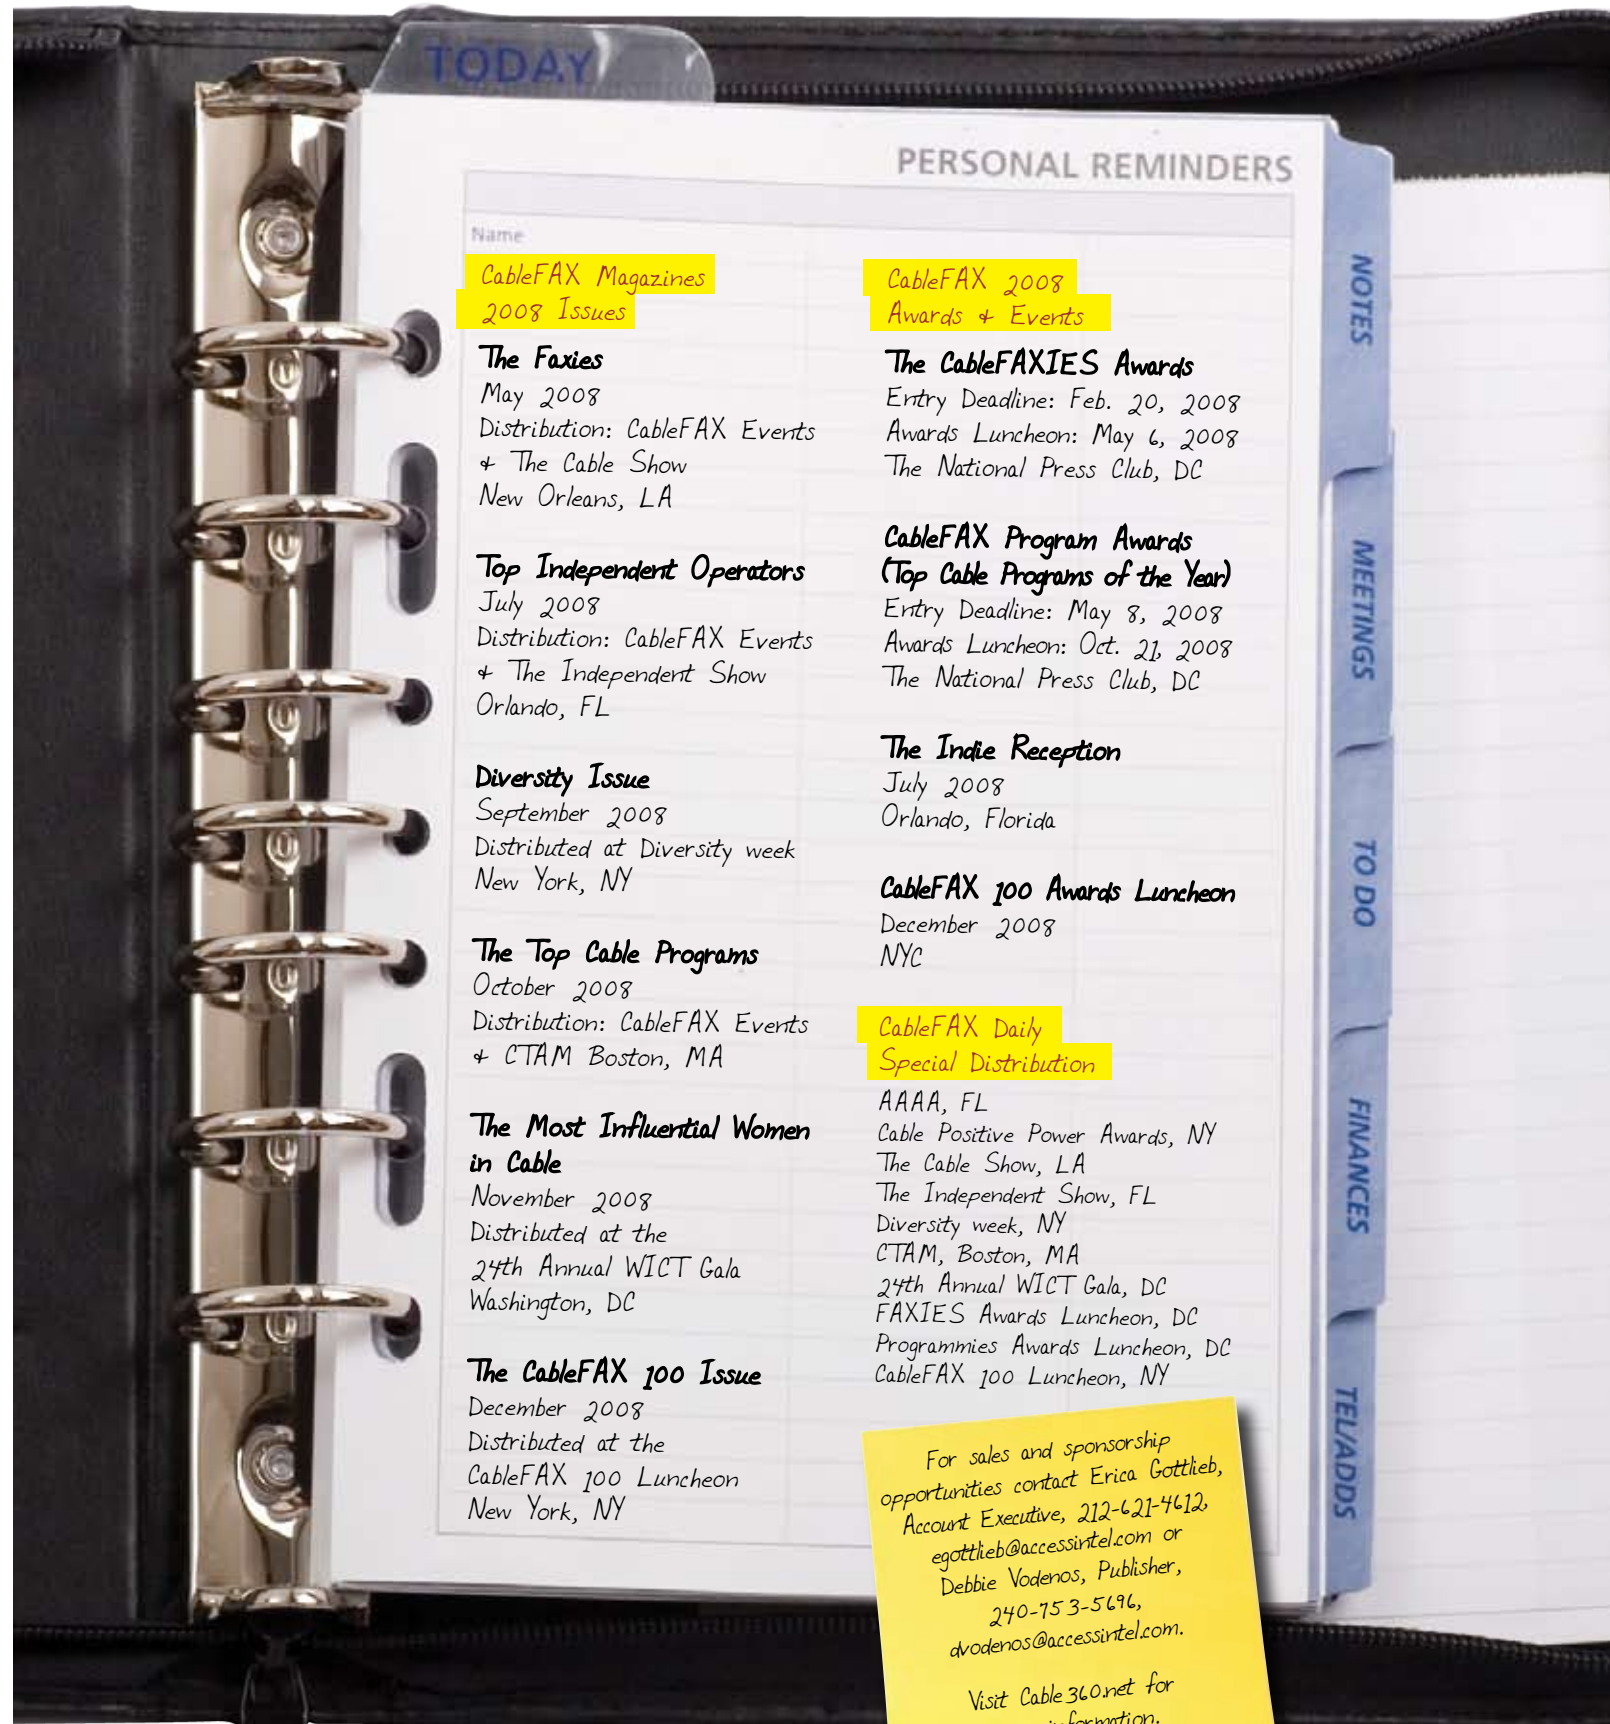 TODAY
PERSONAL REMINDERS
Name
CableFAX Magazines
2008 Issues
The Faxies
May 2008
Distribution: CableFAX Events
& The Cable Show
New Orleans, LA
Top Independent Operators
July 2008
Distribution: CableFAX Events
& The Independent Show
Orlando, FL
Diversity Issue
September 2008
Distributed at Diversity week
New York, NY
The Top Cable Programs
October 2008
Distribution: CableFAX Events
& CTAM Boston, MA
The Most Influential Women
in Cable
November 2008
Distributed at the
24th Annual WICT Gala
Washington, DC
The CableFAX 100 Issue
December 2008
Distributed at the
CableFAX 100 Luncheon
New York, NY
CableFAX 2008
Awards & Events
The CableFAXIES Awards
Entry Deadline: Feb. 20, 2008
Awards Luncheon: May 6, 2008
The National Press Club, DC
CableFAX Program Awards
(Top Cable Programs of the Year)
Entry Deadline: May 8, 2008
Awards Luncheon: Oct. 21, 2008
The National Press Club, DC
The Indie Reception
July 2008
Orlando, Florida
CableFAX 100 Awards Luncheon
December 2008
NYC
CableFAX Daily
Special Distribution
AAAA, FL
Cable Positive Power Awards, NY
The Cable Show, LA
The Independent Show, FL
Diversity week, NY
CTAM, Boston, MA
24th Annual WICT Gala, DC
FAXIES Awards Luncheon, DC
Programmies Awards Luncheon, DC
CableFAX 100 Luncheon, NY
For sales and sponsorship
opportunities contact Erica Gottlieb,
Account Executive, 212-621-4612,
egottlieb@accessintel.com or
Debbie Vodenos, Publisher,
240-753-5696,
dvodenos@accessintel.com.
Visit Cable360.net for
information.
NOTES
MEETINGS
TO DO
FINANCES
TEL/ADDS